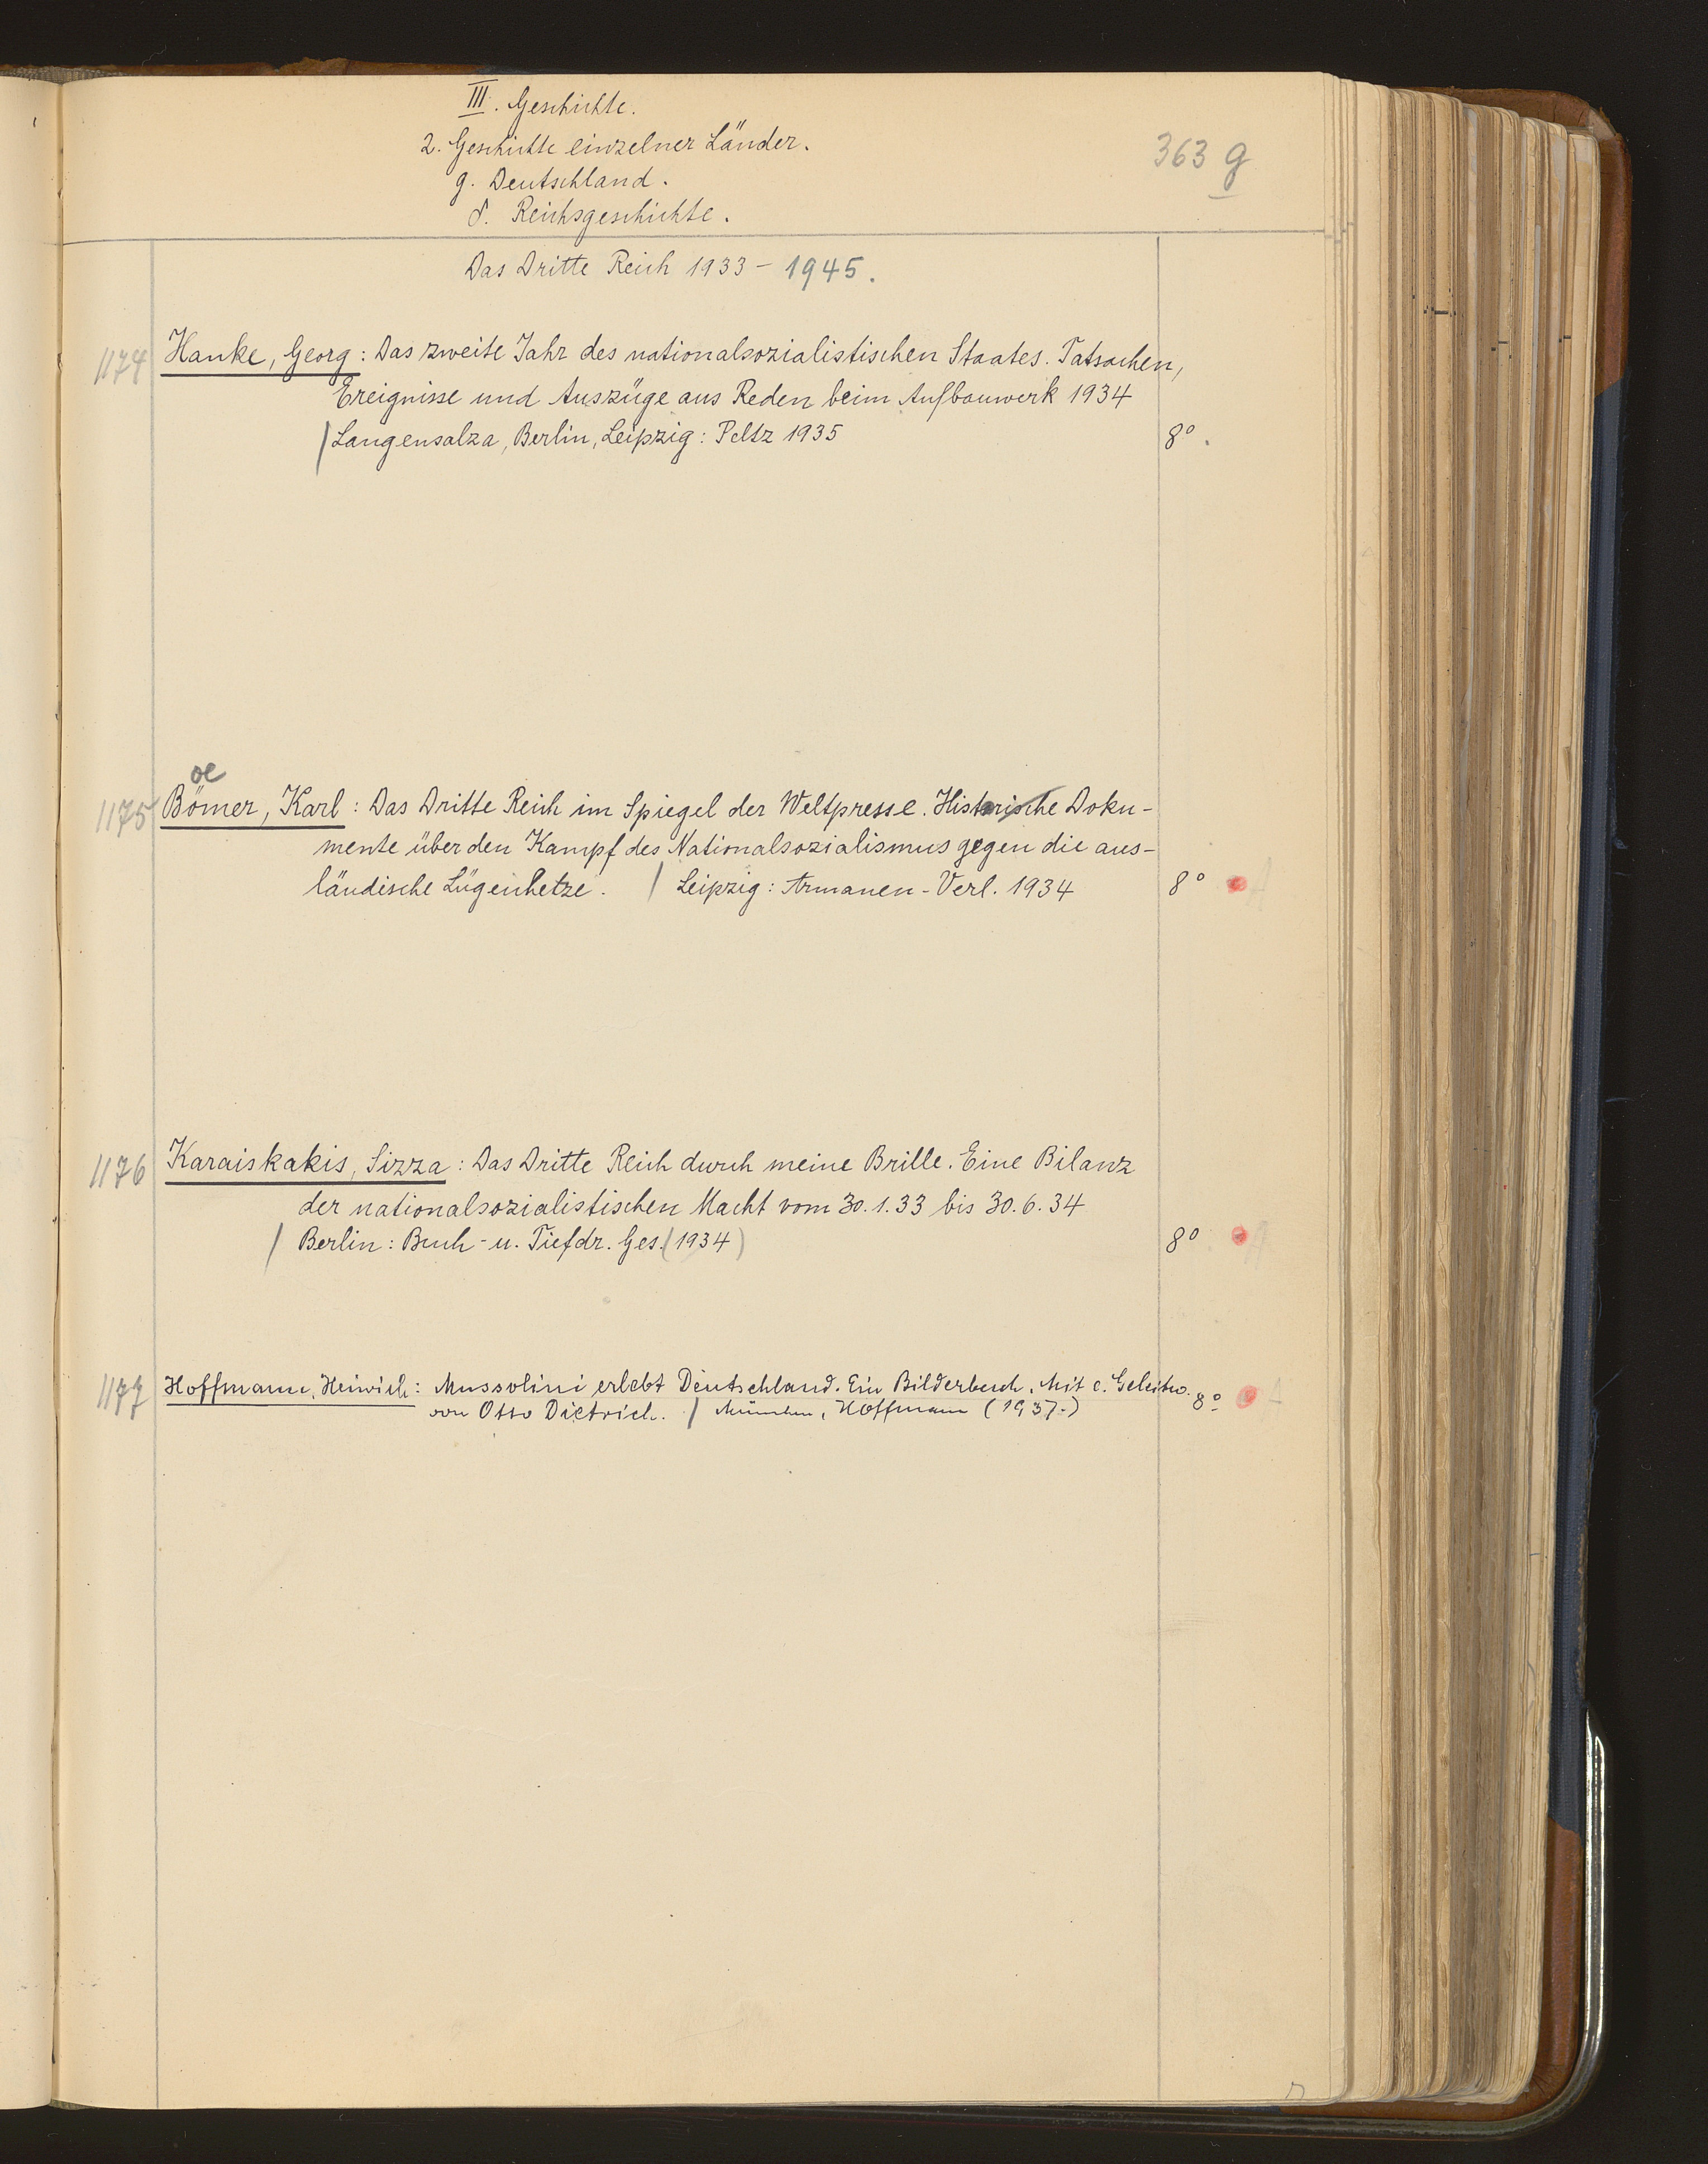 III. Geschichte.
2. Geschichte einzelner Länder.
363 g
g. Deutschland.
δ. Reichsgeschichte.
Das Dritte Reich 1933 - 1945.
1174 Hanke, Georg: Das zweite Jahr des nationalsozialistischen Staates. Tatsachen,
Ereignisse und Auszüge aus Reden beim Aufbauwerk 1934
/ Langensalza, Berlin, Leipzig: Peltz 1935 8°.
oe
1175 Bömer, Karl: Das Dritte Reich im Spiegel der Weltpresse. Historische Doku-
mente über den Kampf des Nationalsozialismus gegen die aus-
ländische Lügenhetze. / Leipzig: Armanen-Verl. 1934 8° A
1176 Karaiskakis, Sizza: Das Dritte Reich durch meine Brille. Eine Bilanz
der nationalsozialistischen Macht vom 30.1.33 bis 30.6.34
/ Berlin: Buch- u. Tiefdr. Ges. (1934) 8° A
1177 Hoffmann, Heinrich: Mussolini erlebt Deutschland. Ein Bilderbuch. Mit e. Geleitw. 8°
von Otto Dietrich. / München, Hoffmann (1937.)